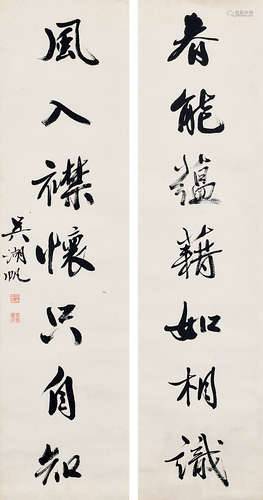 春能蕴藉如相識
風入襟懷只自知
吳湖帆